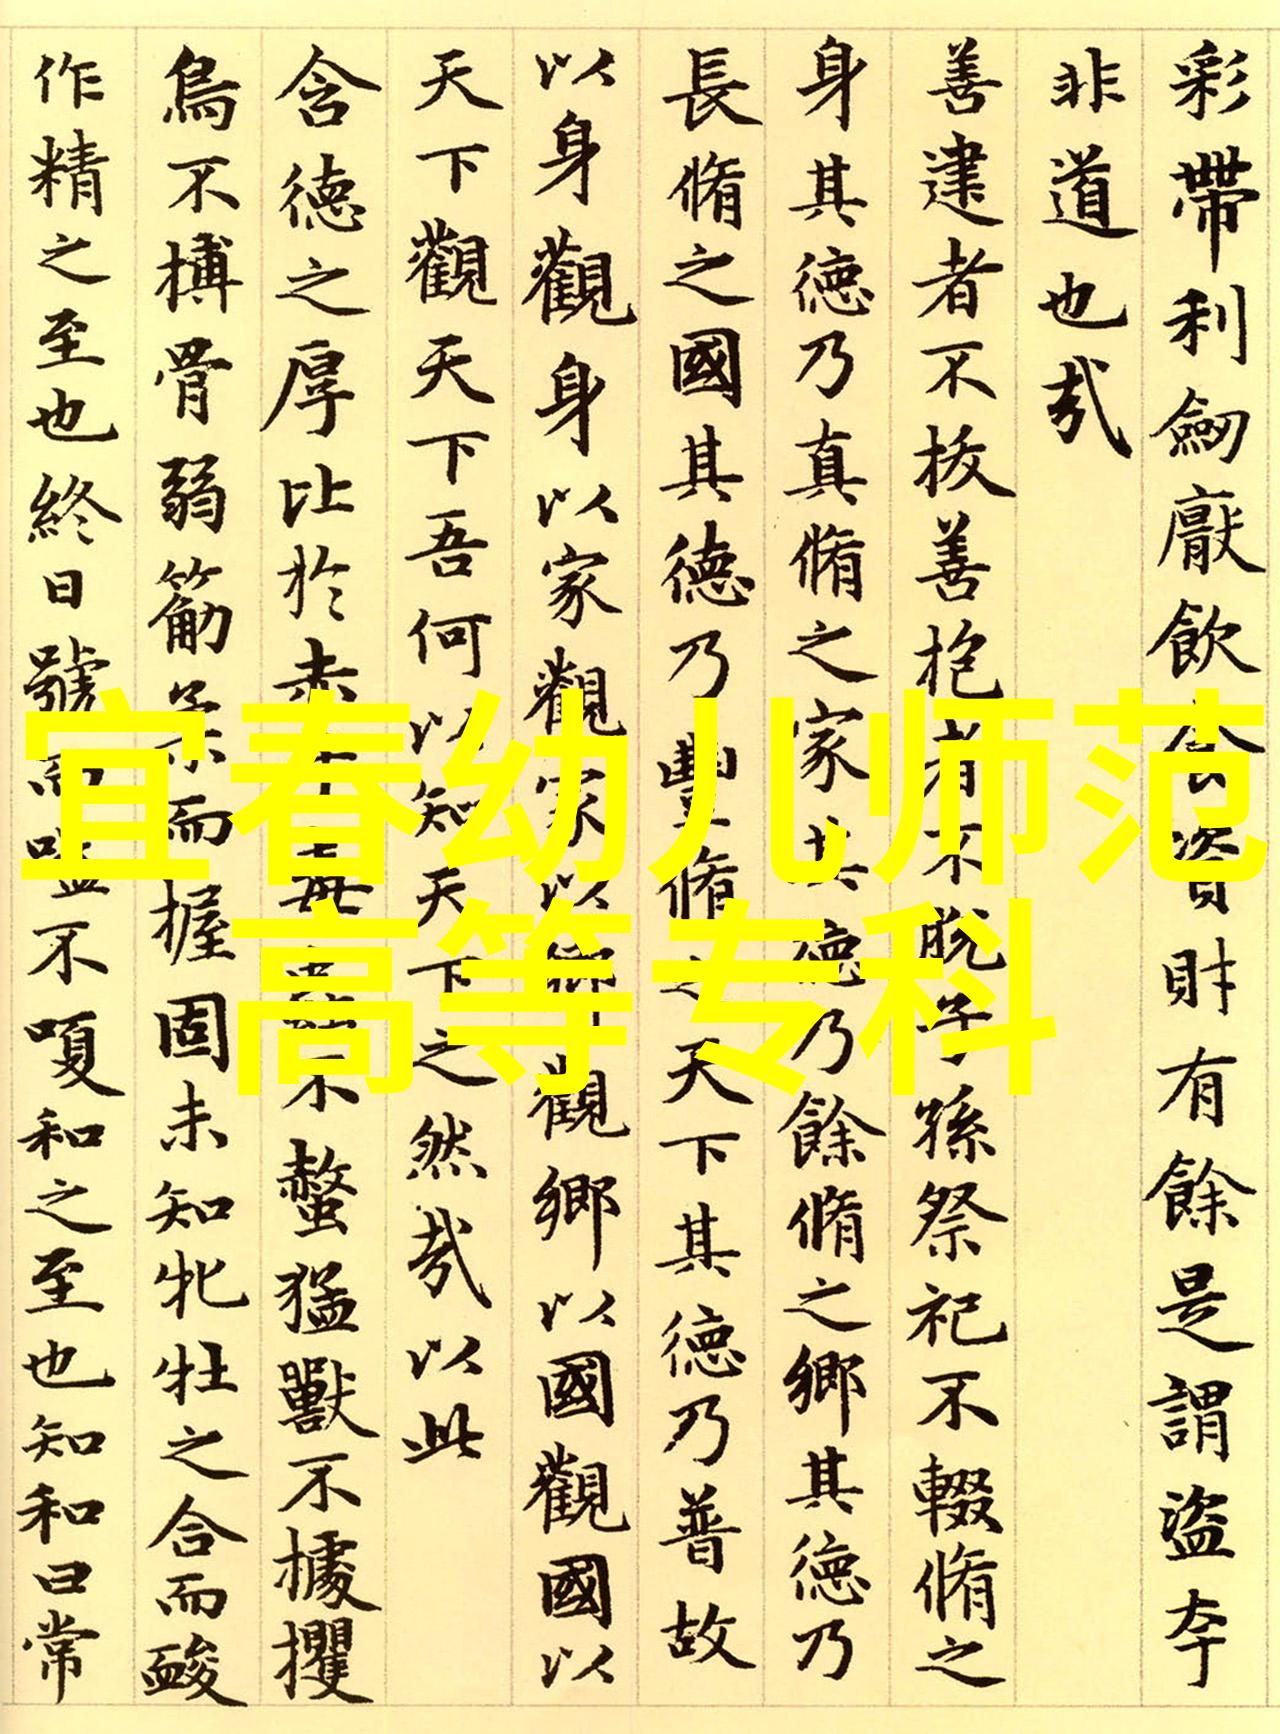 彩帶利劒厭飲食資財有餘是謂盜夸
非道也哉
善建者不拔善抱者不脫子孫祭祀不輟脩之
身其德乃真脩之家其德乃餘脩之鄉其德乃
長脩之國其德乃豐脩之天下其德乃普故
以身觀身以家觀家以鄉觀鄉以國觀國以
天下觀天下吾何以知天下之然哉以此
含德之厚比於赤子毒蟲不螫猛獸不據攫
鳥不搏骨弱筋柔而握固未知牝牡之合而
作精之至也終日號而嗌不嗄和之至也知和曰常
宜春幼儿师范
高等专科